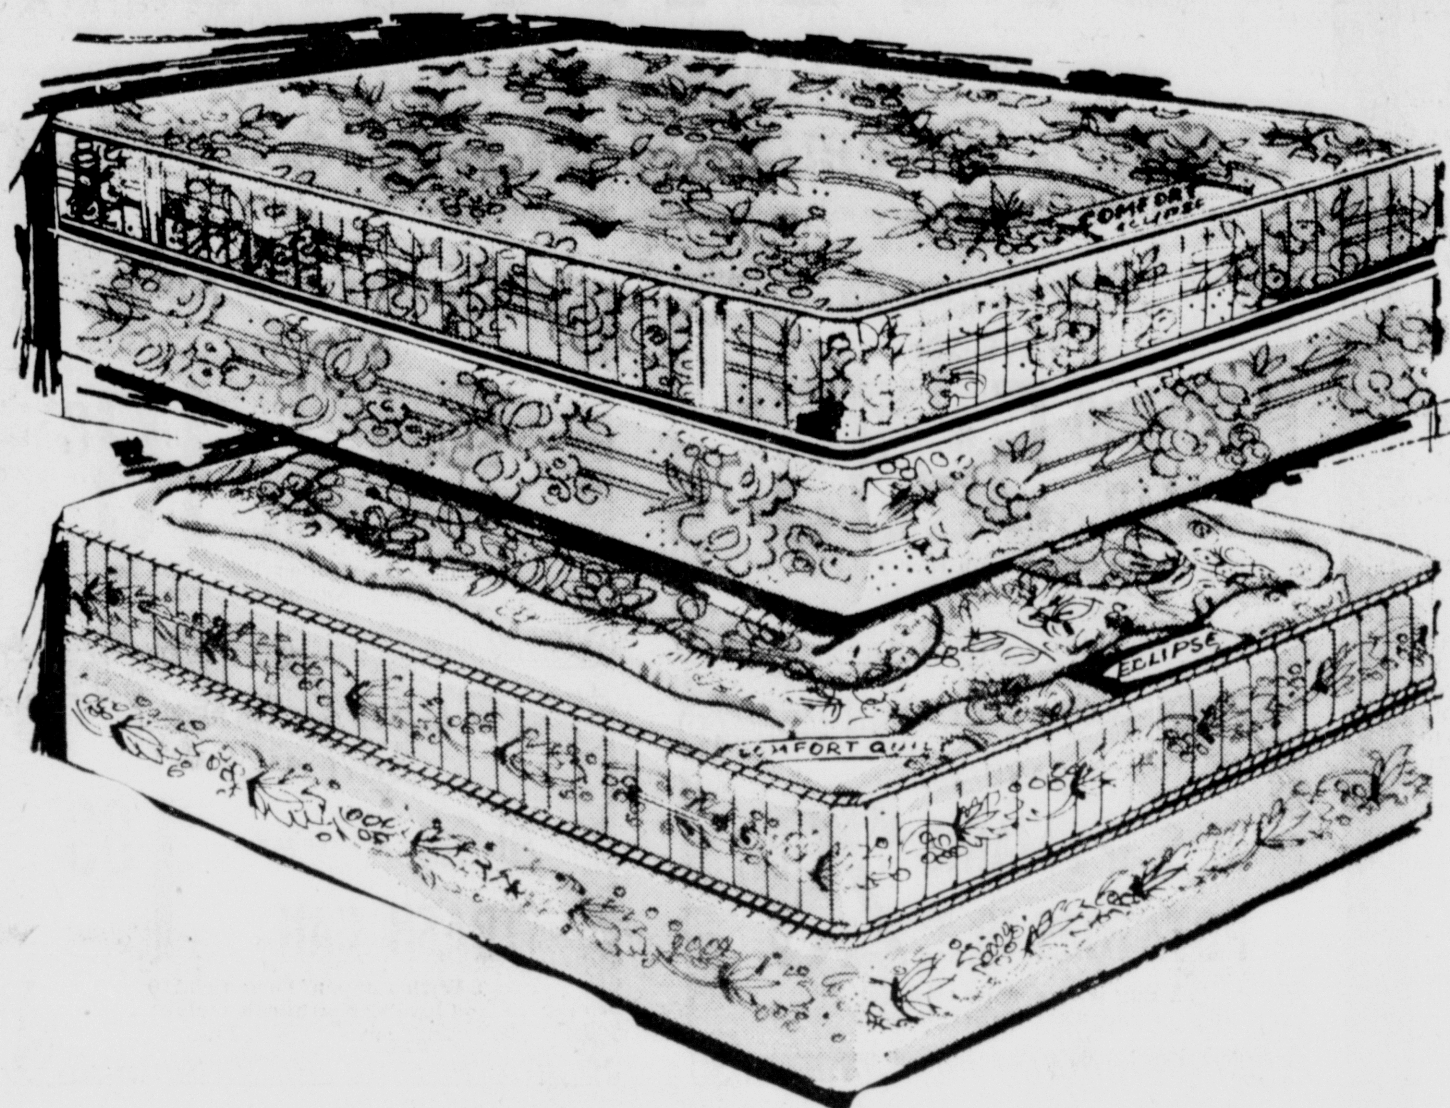 COMFORT
ECLIPSE
ECLIPSE
COMFORT QUILT